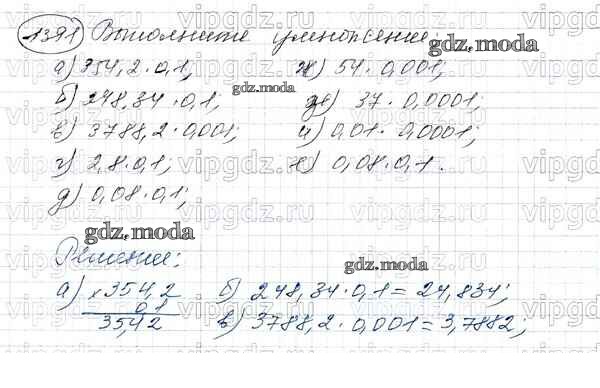 1391 Выполните умножение:
gdz.moda
а) 354,2 · 0,1; ж) 54 · 0,001;
gdz.moda
б) 248,34 · 0,1; 37 · 0,0001;
в) 3788,2 · 0,001; и) 0,01 · 0,0001;
г) 2,8 · 0,1; к) 0,08 · 0,1.
д) 0,08 · 0,1;
gdz.moda
Решение:
gdz.moda
а) × 354,2 б) 248,34 · 0,1 = 24,834;
0,1
35,42 в) 3788,2 · 0,001 = 3,7882;